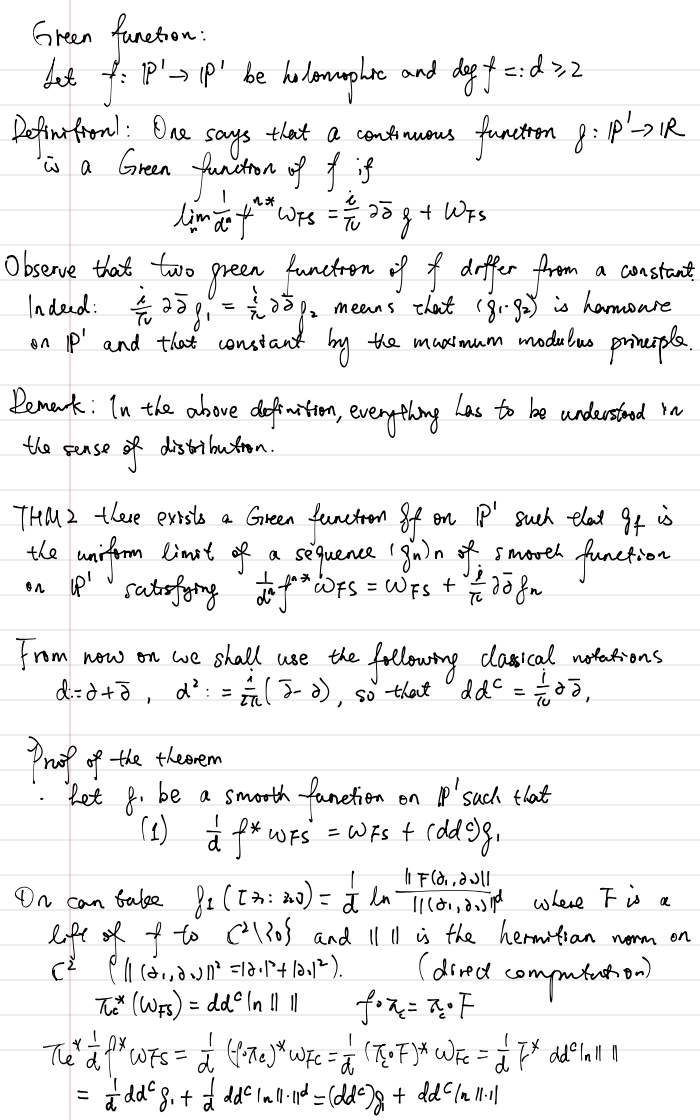 Green function:
Let f: ℙ¹ → ℙ¹ be holomophic and deg f =: d ≥ 2
Definition 1: One says that a continuous function g: ℙ¹ → ℝ
is a Green function of f if
lim_n 1/dⁿ f^{n*} ω_FS = i/π ∂∂̄ g + ω_FS
Observe that two green function of f differ from a constant.
Indeed: i/π ∂∂̄ g₁ = i/π ∂∂̄ g₂ means that (g₁-g₂) is harmonic
on ℙ¹ and that constant by the maximum modulus principle.
Remark: In the above definition, everything has to be understood in
the sense of distribution.
THM 2 there exists a Green function g_f on ℙ¹ such that g_f is
the uniform limit of a sequence (g_n)_n of smooth function
on ℙ¹ satisfying 1/dⁿ f^{n*} ω_FS = ω_FS + i/π ∂∂̄ g_n
From now on we shall use the following classical notations
d := ∂ + ∂̄ , d² := i/2π (∂̄ - ∂), so that dd^c = i/π ∂∂̄,
Proof of the theorem
· Let g₁ be a smooth function on ℙ¹ such that
(1) 1/d f* ω_FS = ω_FS + (dd^c) g₁
On can take g₁ ([z₁ : z₂]) = 1/d ln ‖F(z₁, z₂)‖ / ‖(z₁, z₂)‖^d where F is a
lift of f to ℂ²\{0} and ‖ ‖ is the hermitian norm on
ℂ² (‖(z₁, z₂)‖² = |z₁|² + |z₂|²). (direct computation)
π_c* (ω_FS) = dd^c ln ‖ ‖ f∘π_c = π_c∘F
π_c* 1/d f* ω_FS = 1/d (f∘π_c)* ω_FS = 1/d (π_c∘F)* ω_FS = 1/d F* dd^c ln ‖ ‖
= 1/d dd^c g₁ + 1/d dd^c ln ‖·‖^d = (dd^c) g₁ + dd^c ln ‖·‖